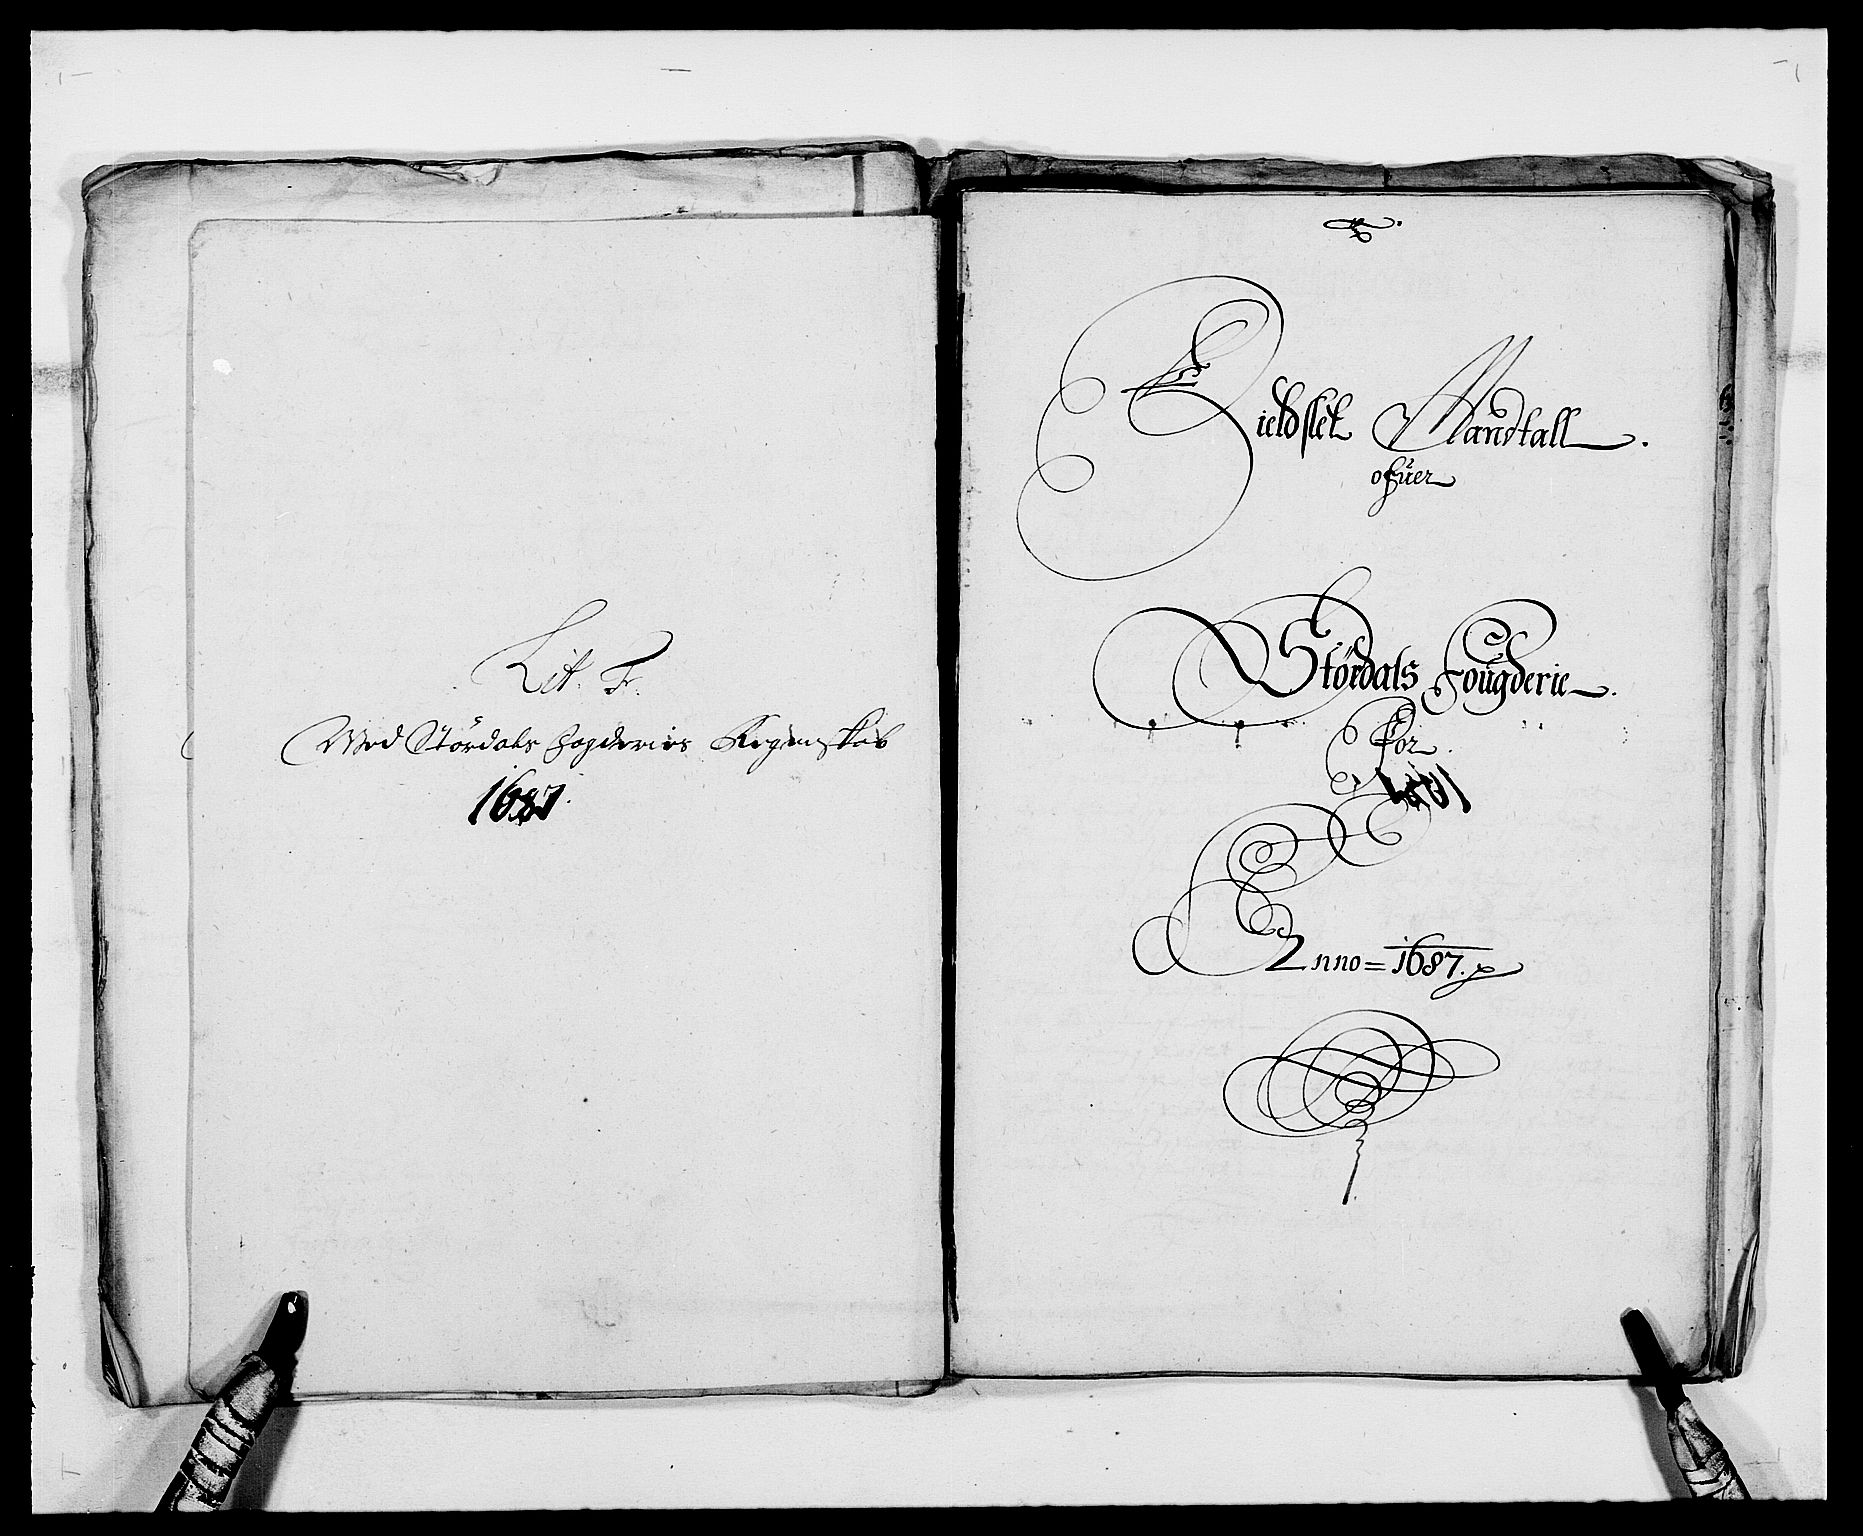 Lit. F.
Med Stördals fogderies Regenskab
1687.
Gieldslet Mandtall.
ofuer
Stördals Fougderie.
For
Anno = 1687.